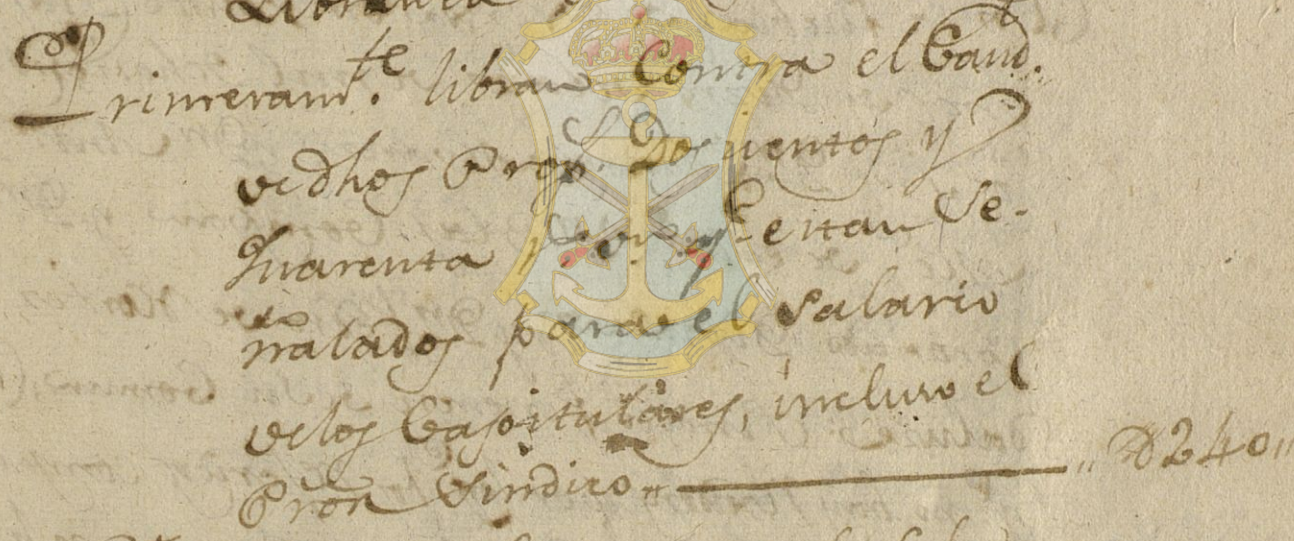 Libranza
Primeramte. libran Contra el Caud.
de dhos Prop.s Doscientos y
Quarenta q. estan Se-
ñalados para el Salario
de los Capitulares, incluso el
Pror. Sindico„ „ D240„